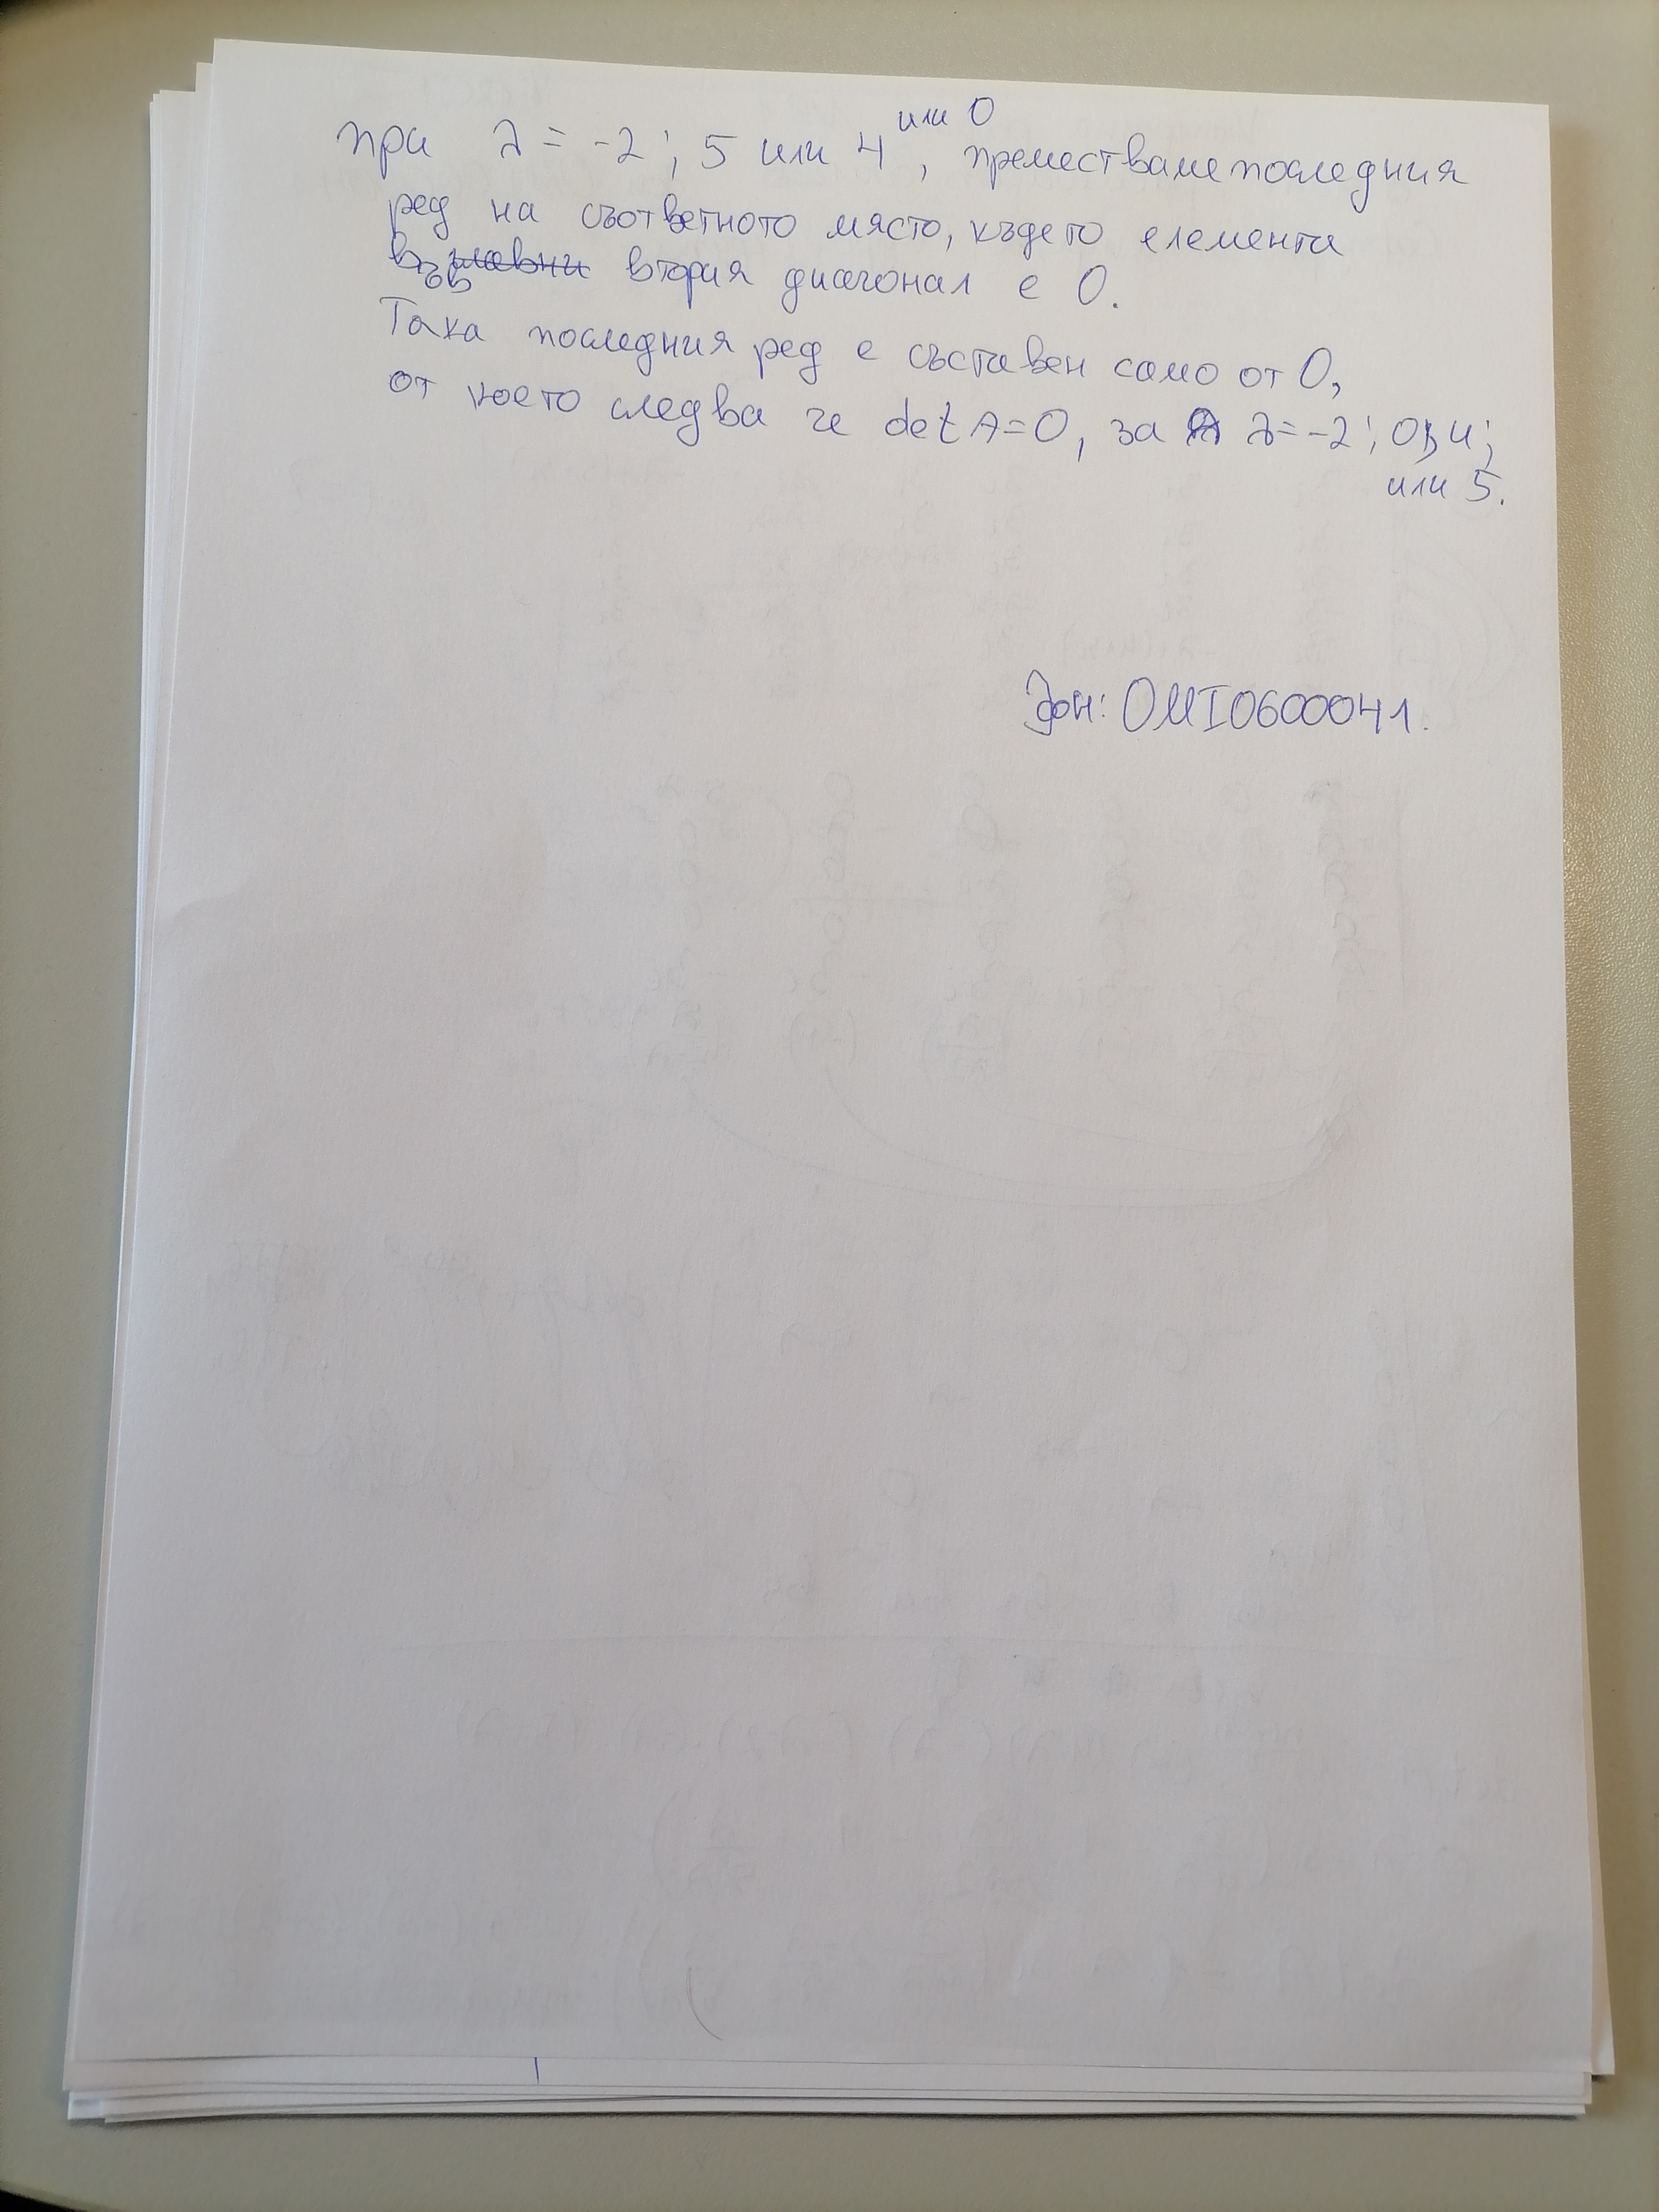 при λ = -2; 5 или 4 или 0, преместваме последния
ред на съответното място, където елемента
във втория диагонал е 0.
Така последния ред е съставен само от 0,
от което следва че det A=0, за λ=-2; 0; 4;
или 5.
фн: 0MI0600041.